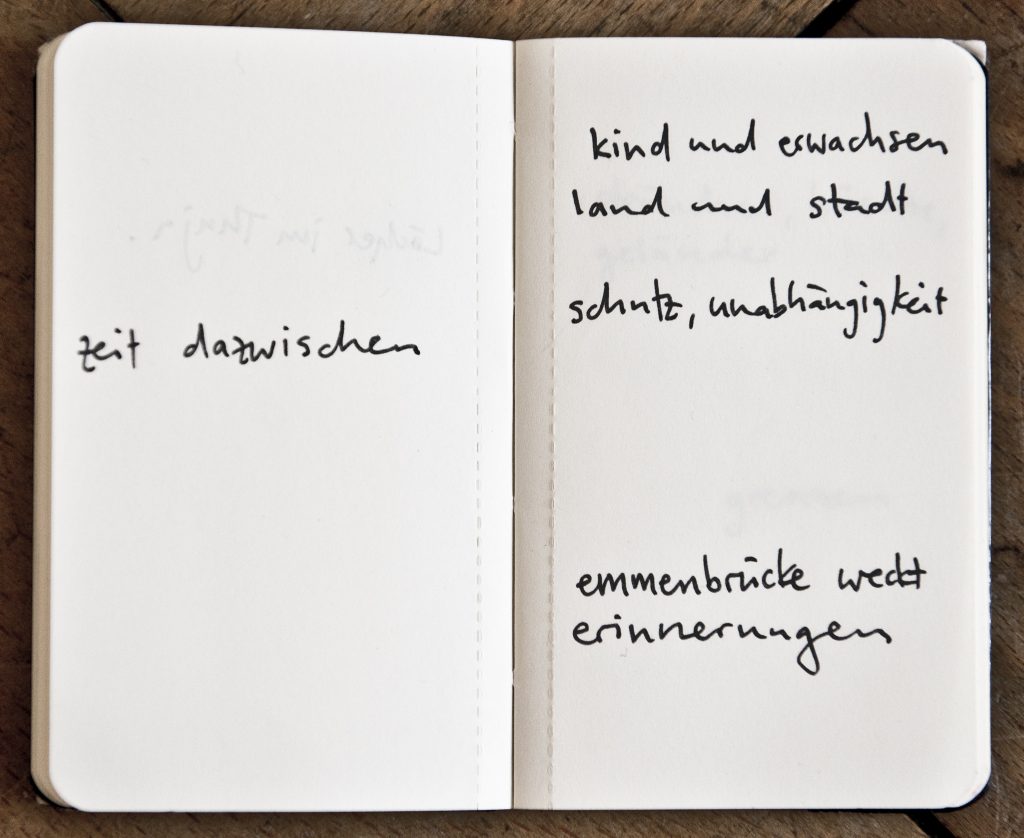 zeit dazwischen
kind und erwachsen
land und stadt
schutz, unabhängigkeit
emmenbrücke weckt
erinnerungen